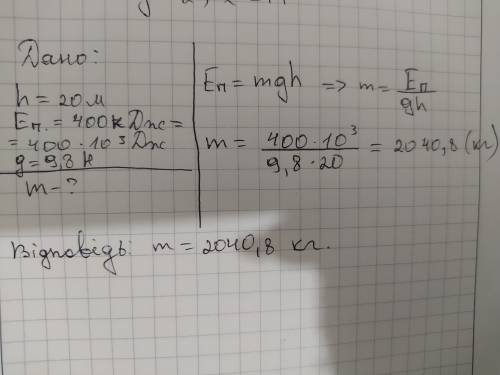 Дано:
h = 20 м
Eп. = 400 к Дж =
= 400 · 10³ Дж
g = 9,8 Н
m - ?
Eп = mgh => m = Eп / gh
m = 400 · 10³ / 9,8 · 20 = 2040,8 (кг)
Відповідь: m = 2040,8 кг.